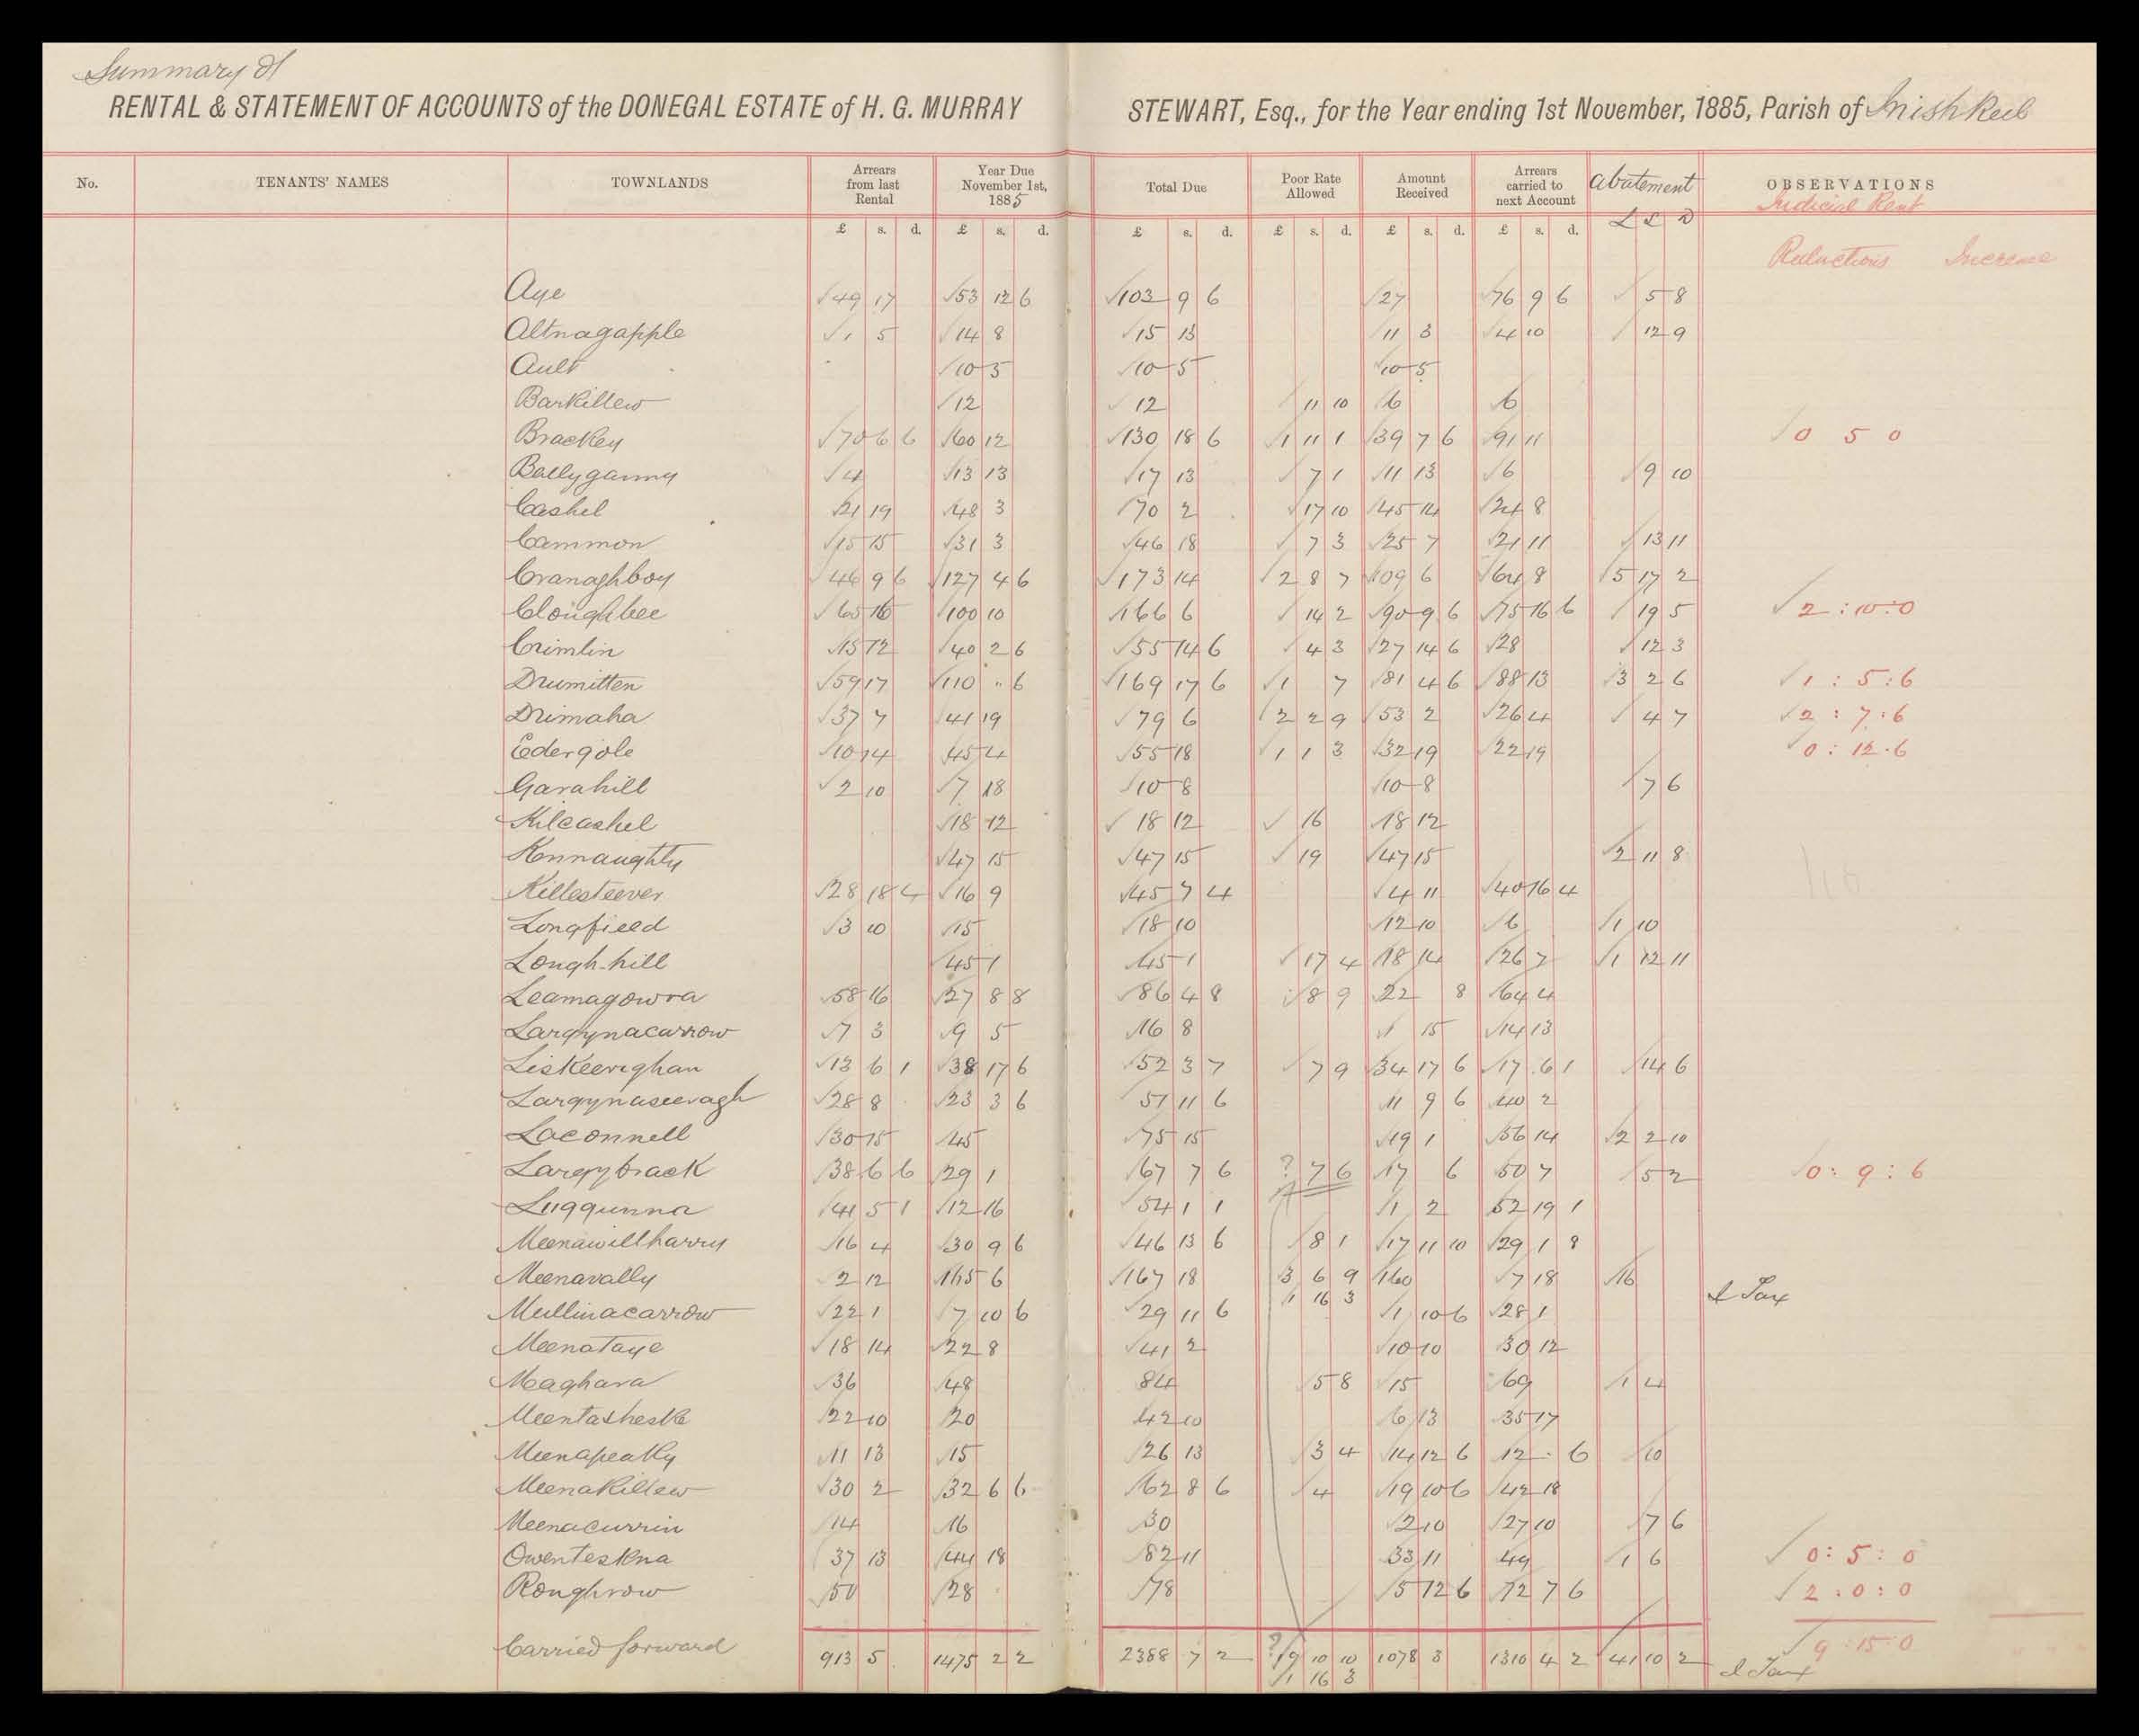 Summary of
RENTAL & STATEMENT OF ACCOUNTS of the DONEGAL ESTATE of H. G. MURRAY STEWART, Esq., for the Year ending 1st November, 1885, Parish of Inishkeel
No. TENANTS' NAMES TOWNLANDS Arrears from last Rental Year Due November 1st, 1885 Total Due Poor Rate Allowed Amount Received Arrears carried to next Account Abatement OBSERVATIONS
Judicial Rent
£ s. d. £ s. d. £ s. d. £ s. d. £ s. d. £ s. d. £ S D
Reductions Increase
Aye 49 17 53 12 6 103 9 6 27 76 9 6 5 8
Altnagapple 1 5 14 8 15 13 11 3 4 10 12 9
Ault 10 5 10 5 10 5
Barkillew 12 12 11 10 6 6
Brackey 70 6 6 60 12 130 18 6 1 11 1 39 7 6 91 11 0 5 0
Ballyganny 4 13 13 17 13 7 1 11 13 6 9 10
Cashel 21 19 48 3 70 2 17 10 45 14 24 8
Cammon 15 15 31 3 46 18 7 3 25 7 21 11 13 11
Cranaghboy 46 9 6 127 4 6 173 14 2 8 7 109 6 64 8 5 17 2
Cloughbee 65 16 100 10 166 6 14 2 90 9 6 75 16 6 19 5 2 : 10 : 0
Crimlin 15 12 40 2 6 55 14 6 4 3 27 14 6 28 12 3
Drumitten 59 17 110 " 6 169 17 6 1 7 81 4 6 88 13 3 2 6 1 : 5 : 6
Drimaha 37 7 41 19 79 6 2 2 9 53 2 26 4 4 7 2 : 7 : 6
Edergole 10 14 45 4 55 18 1 1 3 32 19 22 19 0 : 12 . 6
Garahill 2 10 7 18 10 8 10 8 7 6
Kilcashel 18 12 18 12 16 18 12
Konnaughty 47 15 47 15 19 47 15 2 11 8
Killesteever 28 18 4 16 9 45 7 4 4 11 40 16 4
Longfield 3 10 15 18 10 12 10 6 1 10
Lough-hill 45 1 45 1 17 4 18 14 26 7 1 12 11
Leamagowra 58 16 27 8 8 86 4 8 8 9 22 8 64 4
Largynacarrow 7 3 9 5 16 8 1 15 14 13
Liskeerighan 13 6 1 38 17 6 52 3 7 7 9 34 17 6 17 6 1 14 6
Largynaseeragh 28 8 23 3 6 51 11 6 11 9 6 40 2
Laconnell 30 15 45 75 15 19 1 56 14 2 2 10
Largybrack 38 6 6 29 1 67 7 6 ? 7 6 17 6 50 7 5 2 0 : 9 : 6
Luggunna 41 5 1 12 16 54 1 1 1 2 52 19 1
Meenawillharry 16 4 30 9 6 46 13 6 8 1 17 11 10 29 1 8
Meenavally 2 12 165 6 167 18 3 6 9 160 7 18 16
1 16 3 I Tax
Mullinacarrow 22 1 7 10 6 29 11 6 1 10 6 28 1
Meenataye 18 14 22 8 41 2 10 10 30 12
Maghara 36 48 84 5 8 15 69 1 4
Meentasheska 22 10 20 42 10 6 13 35 17
Meenapeaky 11 13 15 26 13 3 4 14 12 6 12 - 6 10
Meenakillew 30 2 32 6 6 62 8 6 4 19 10 6 42 18
Meenacurrin 14 16 30 2 10 27 10 7 6
Owenteskna 37 13 44 18 82 11 33 11 49 1 6 0 : 5 : 0
Roughrow 50 28 78 5 12 6 72 7 6 2 : 0 : 0
Carried forward 913 5 1475 2 2 2388 7 2 ? 19 10 10 1078 3 1310 4 2 41 10 2 9 : 15 : 0
1 16 3 I Tax